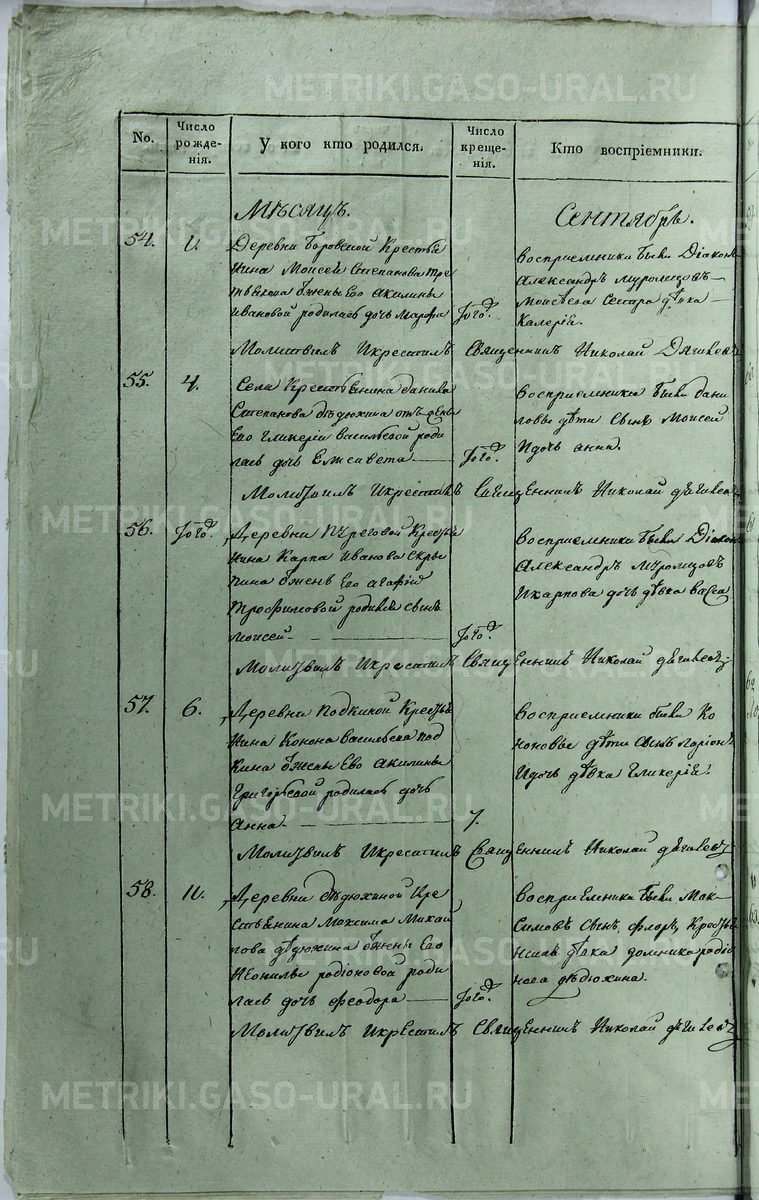 METRIKI.GASO-URAL.RU
No.
Число рожде-нія.
У кого кто родился.
Число креще-нія.
Кто воспріемники.
Мѣсяцъ.
Сентябрь.
54.
Деревни Боровской Крестья
нина Моисея Степанова
Ево Акилины
Ивановой родилась дочь Марфа
Того.
Восприемники были Діаконъ
Александръ Муромцовъ
Моисеева Сестра дѣвка
Калерія.
Молитвилъ Икрестилъ Священникъ Николай Дягилевъ
55.
4.
Села Крестьянина Данила
Степанова Дѣдюхина отъ жены
Ево Гликеріи Васильевой роди
лась дочь Елисавета
Того.
восприемники были Дани
ловы дѣти Сынъ Моисей
Идочь Анна.
Молитвилъ Икрестилъ Священникъ Николай Дягилевъ
56.
Того.
Деревни Крестья
нина Карпа Иванова
Ево Агафіи
Трофимовой родился сынъ
Моисей
Того.
восприемники были Діаконъ
Александръ Муромцовъ
Икарпова дочь дѣвка Васса
Молитвилъ Икрестилъ Священникъ Николай Дягилевъ
57.
6.
Деревни Подкиной Крестья
нина Конона Васильева Под
кина Ужены Ево Акилины
Григорьевой родилась дочь
Анна.
7.
восприемники были Ко
ноновы дѣти Сынъ Ларіонъ
Идочь дѣвка Гликерія.
Молитвилъ Икрестилъ Священникъ Николай Дягилевъ
58.
11.
Деревни Дѣдюхиной Кре
стьянина Максима Михаи
лова Дѣдюхина Ужены Ево
Неонилы Родіоновой роди
лась дочь Феодора
Того.
Восприемники были Мак
Симовъ Сынъ Флоръ, Крестья
нская дѣвка Домника Родіо
нова Дѣдюхина.
Молитвилъ Икрестилъ Священникъ Николай Дягилевъ